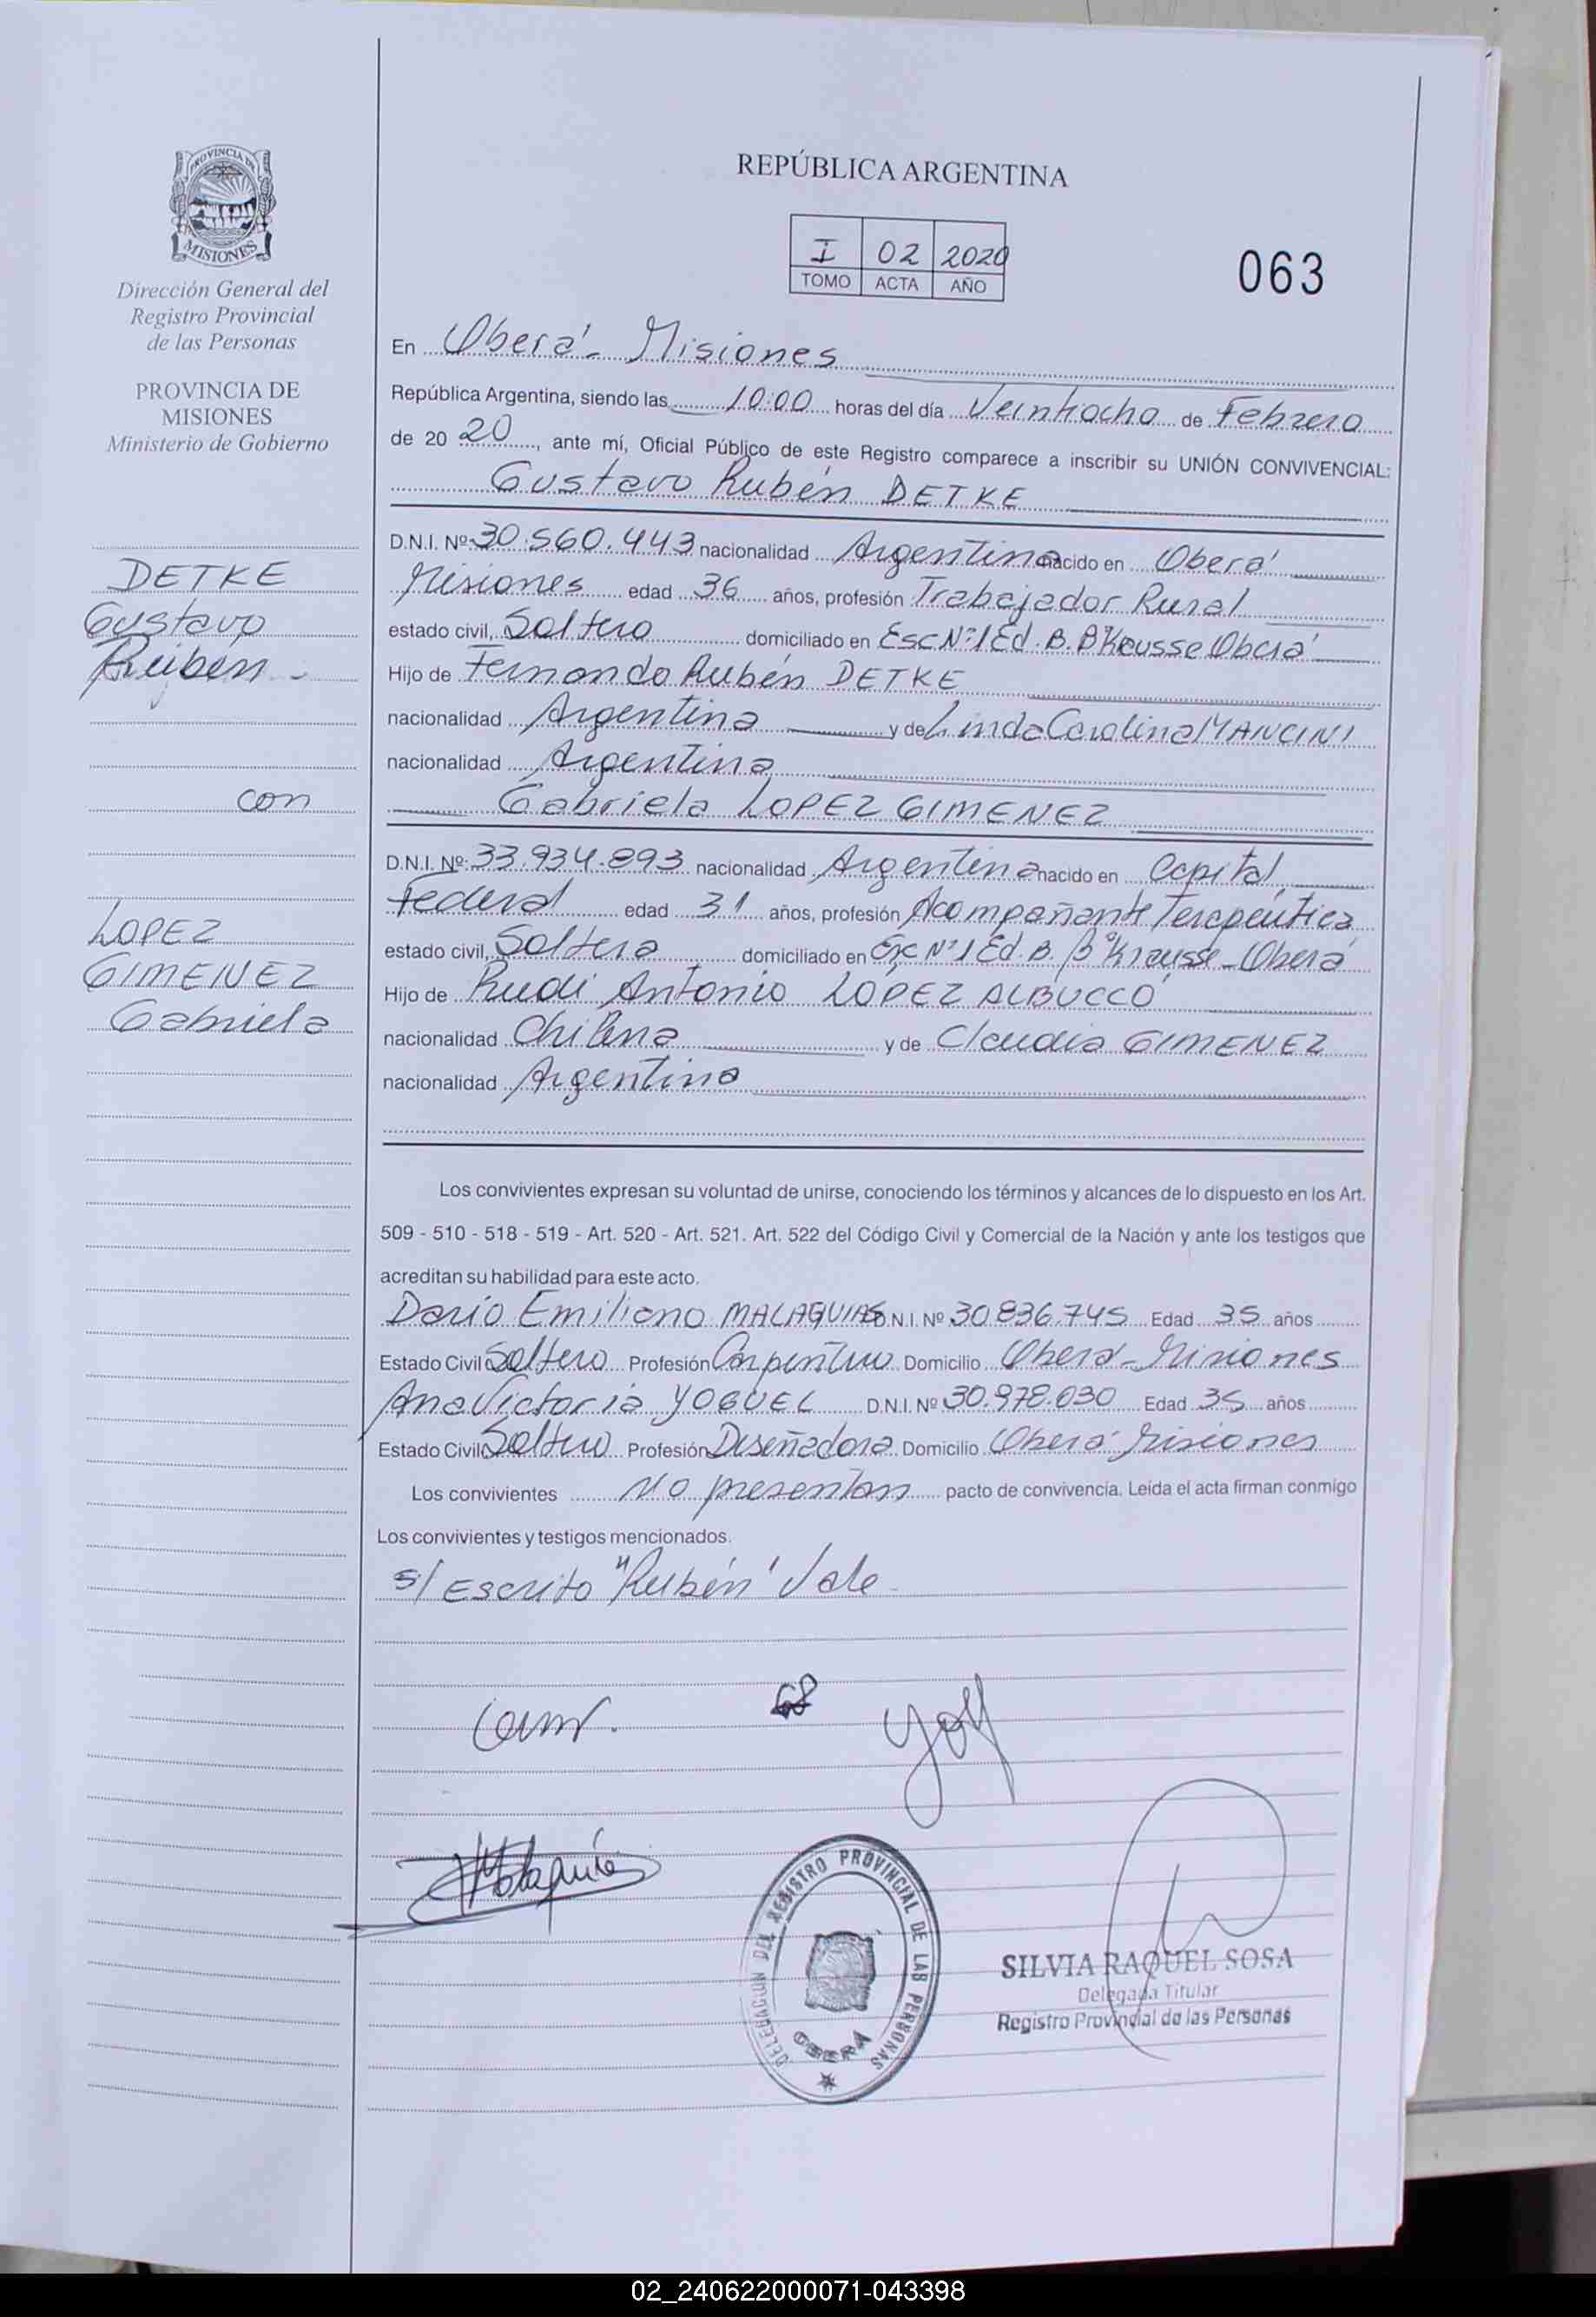 PROVINCIA DE
MISIONES
Dirección General del
Registro Provincial
de las Personas
PROVINCIA DE
MISIONES
Ministerio de Gobierno
DETKE
Gustavo
Rubén -
con
LOPEZ
GIMENEZ
Gabriela
REPÚBLICA ARGENTINA
I 02 2020
TOMO ACTA AÑO
063
En Oberá - Misiones
República Argentina, siendo las 10:00 horas del día Veintiocho de Febrero
de 20 20, ante mí, Oficial Público de este Registro comparece a inscribir su UNIÓN CONVIVENCIAL:
Gustavo Rubén DETKE
D.N.I. Nº 30.560.443 nacionalidad Argentina nacido en Oberá
Misiones edad 36 años, profesión Trabajador Rural
estado civil, Soltero domiciliado en Esc Nº 1 Ed. B. Bº Krausse Oberá
Hijo de Fernando Rubén DETKE
nacionalidad Argentina y de Linda Carolina MANCINI
nacionalidad Argentina
Gabriela LOPEZ GIMENEZ
D.N.I. Nº: 33.934.893 nacionalidad Argentina nacido en Capital
Federal edad 31 años, profesión Acompañante Terapéutica
estado civil, Soltera domiciliado en Esc Nº 1 Ed. B. Bº Krausse - Oberá
Hijo de Rudi Antonio LOPEZ ALBUCCO
nacionalidad Chilena y de Claudia GIMENEZ
nacionalidad Argentina
Los convivientes expresan su voluntad de unirse, conociendo los términos y alcances de lo dispuesto en los Art.
509 - 510 - 518 - 519 - Art. 520 - Art. 521. Art. 522 del Código Civil y Comercial de la Nación y ante los testigos que
acreditan su habilidad para este acto.
Darío Emiliano MALAQUIAS D.N.I. Nº 30.836.745 Edad 35 años
Estado Civil Soltero Profesión Carpintero Domicilio Oberá - Misiones
Ana Victoria YOGUEL D.N.I. Nº 30.978.030 Edad 35 años
Estado Civil Soltero Profesión Diseñadora Domicilio Oberá Misiones
Los convivientes No presentan pacto de convivencia. Leída el acta firman conmigo
Los convivientes y testigos mencionados.
s/ Escrito "Rubén" Vale
Malaquías
DELEGACION DEL REGISTRO PROVINCIAL DE LAS PERSONAS
OBERÁ
SILVIA RAQUEL SOSA
Delegada Titular
Registro Provincial de las Personas
02_240622000071-043398